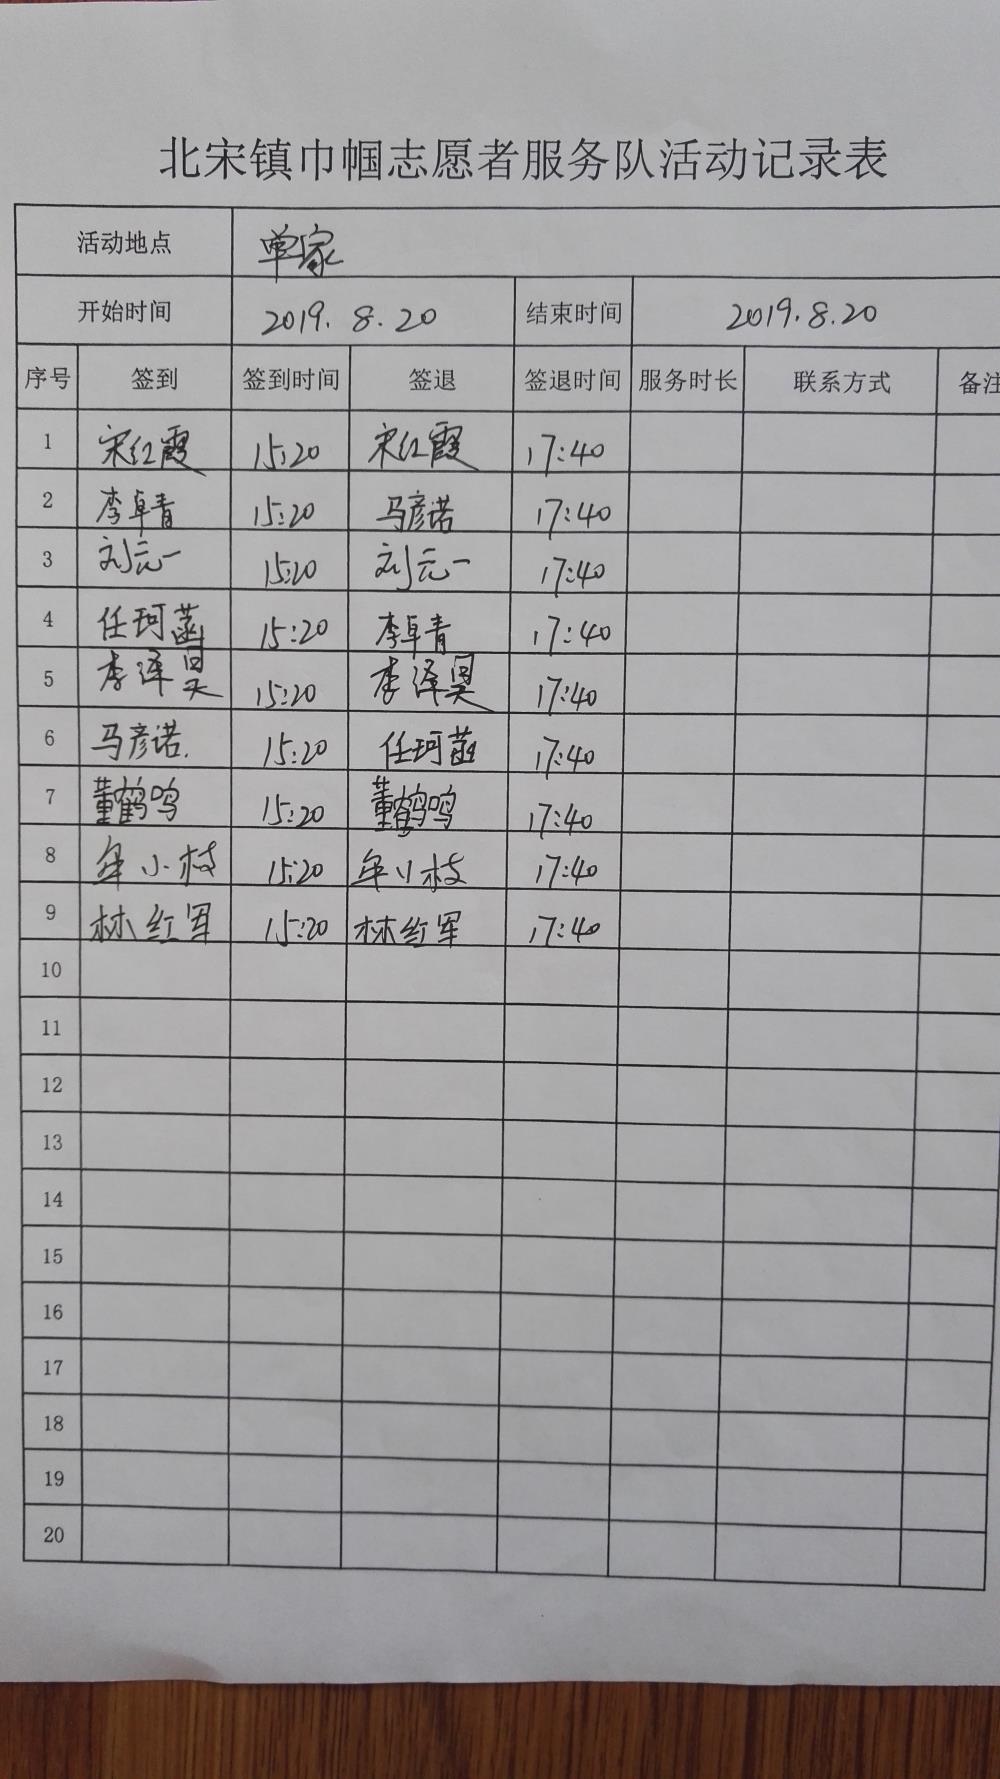 北宋镇巾帼志愿者服务队活动记录表
活动地点 单家
开始时间 2019.8.20 结束时间 2019.8.20
序号 签到 签到时间 签退 签退时间 服务时长 联系方式 备注
1 宋红霞 15:20 宋红霞 17:40
2 李卓青 15:20 马彦诺 17:40
3 刘元一 15:20 刘元一 17:40
4 任珂菡 15:20 李卓青 17:40
5 李泽昊 15:20 李泽昊 17:40
6 马彦诺. 15:20 任珂菡 17:40
7 董鹤鸣 15:20 董鹤鸣 17:40
8 牟小枝 15:20 牟小枝 17:40
9 林红军 15:20 林红军 17:40
10
11
12
13
14
15
16
17
18
19
20